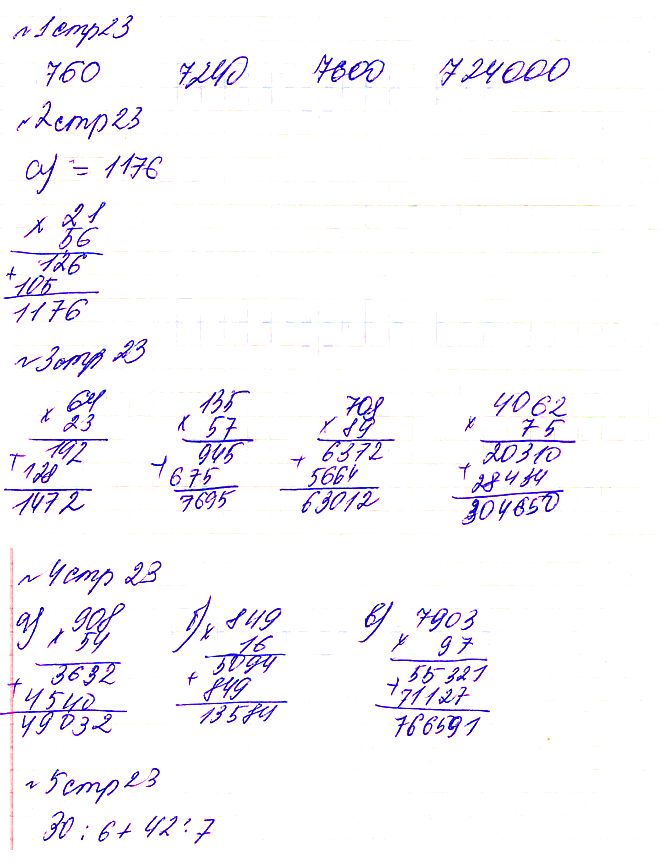 №1 стр 23
760 7240 7600 724000
№2 стр 23
а) = 1176
× 21
56
126
+
105
1176
№3 стр 23
× 64 × 135 × 708 × 4062
23 57 89 75
192 945 6372 20310
+ + + +
128 675 5664 28434
1472 7695 63012 304650
№4 стр 23
а) × 908 б) × 849 в) × 7903
54 16 97
3632 5094 55321
+ + +
4540 849 71127
49032 13584 766591
№5 стр 23
30 : 6 + 42 : 7